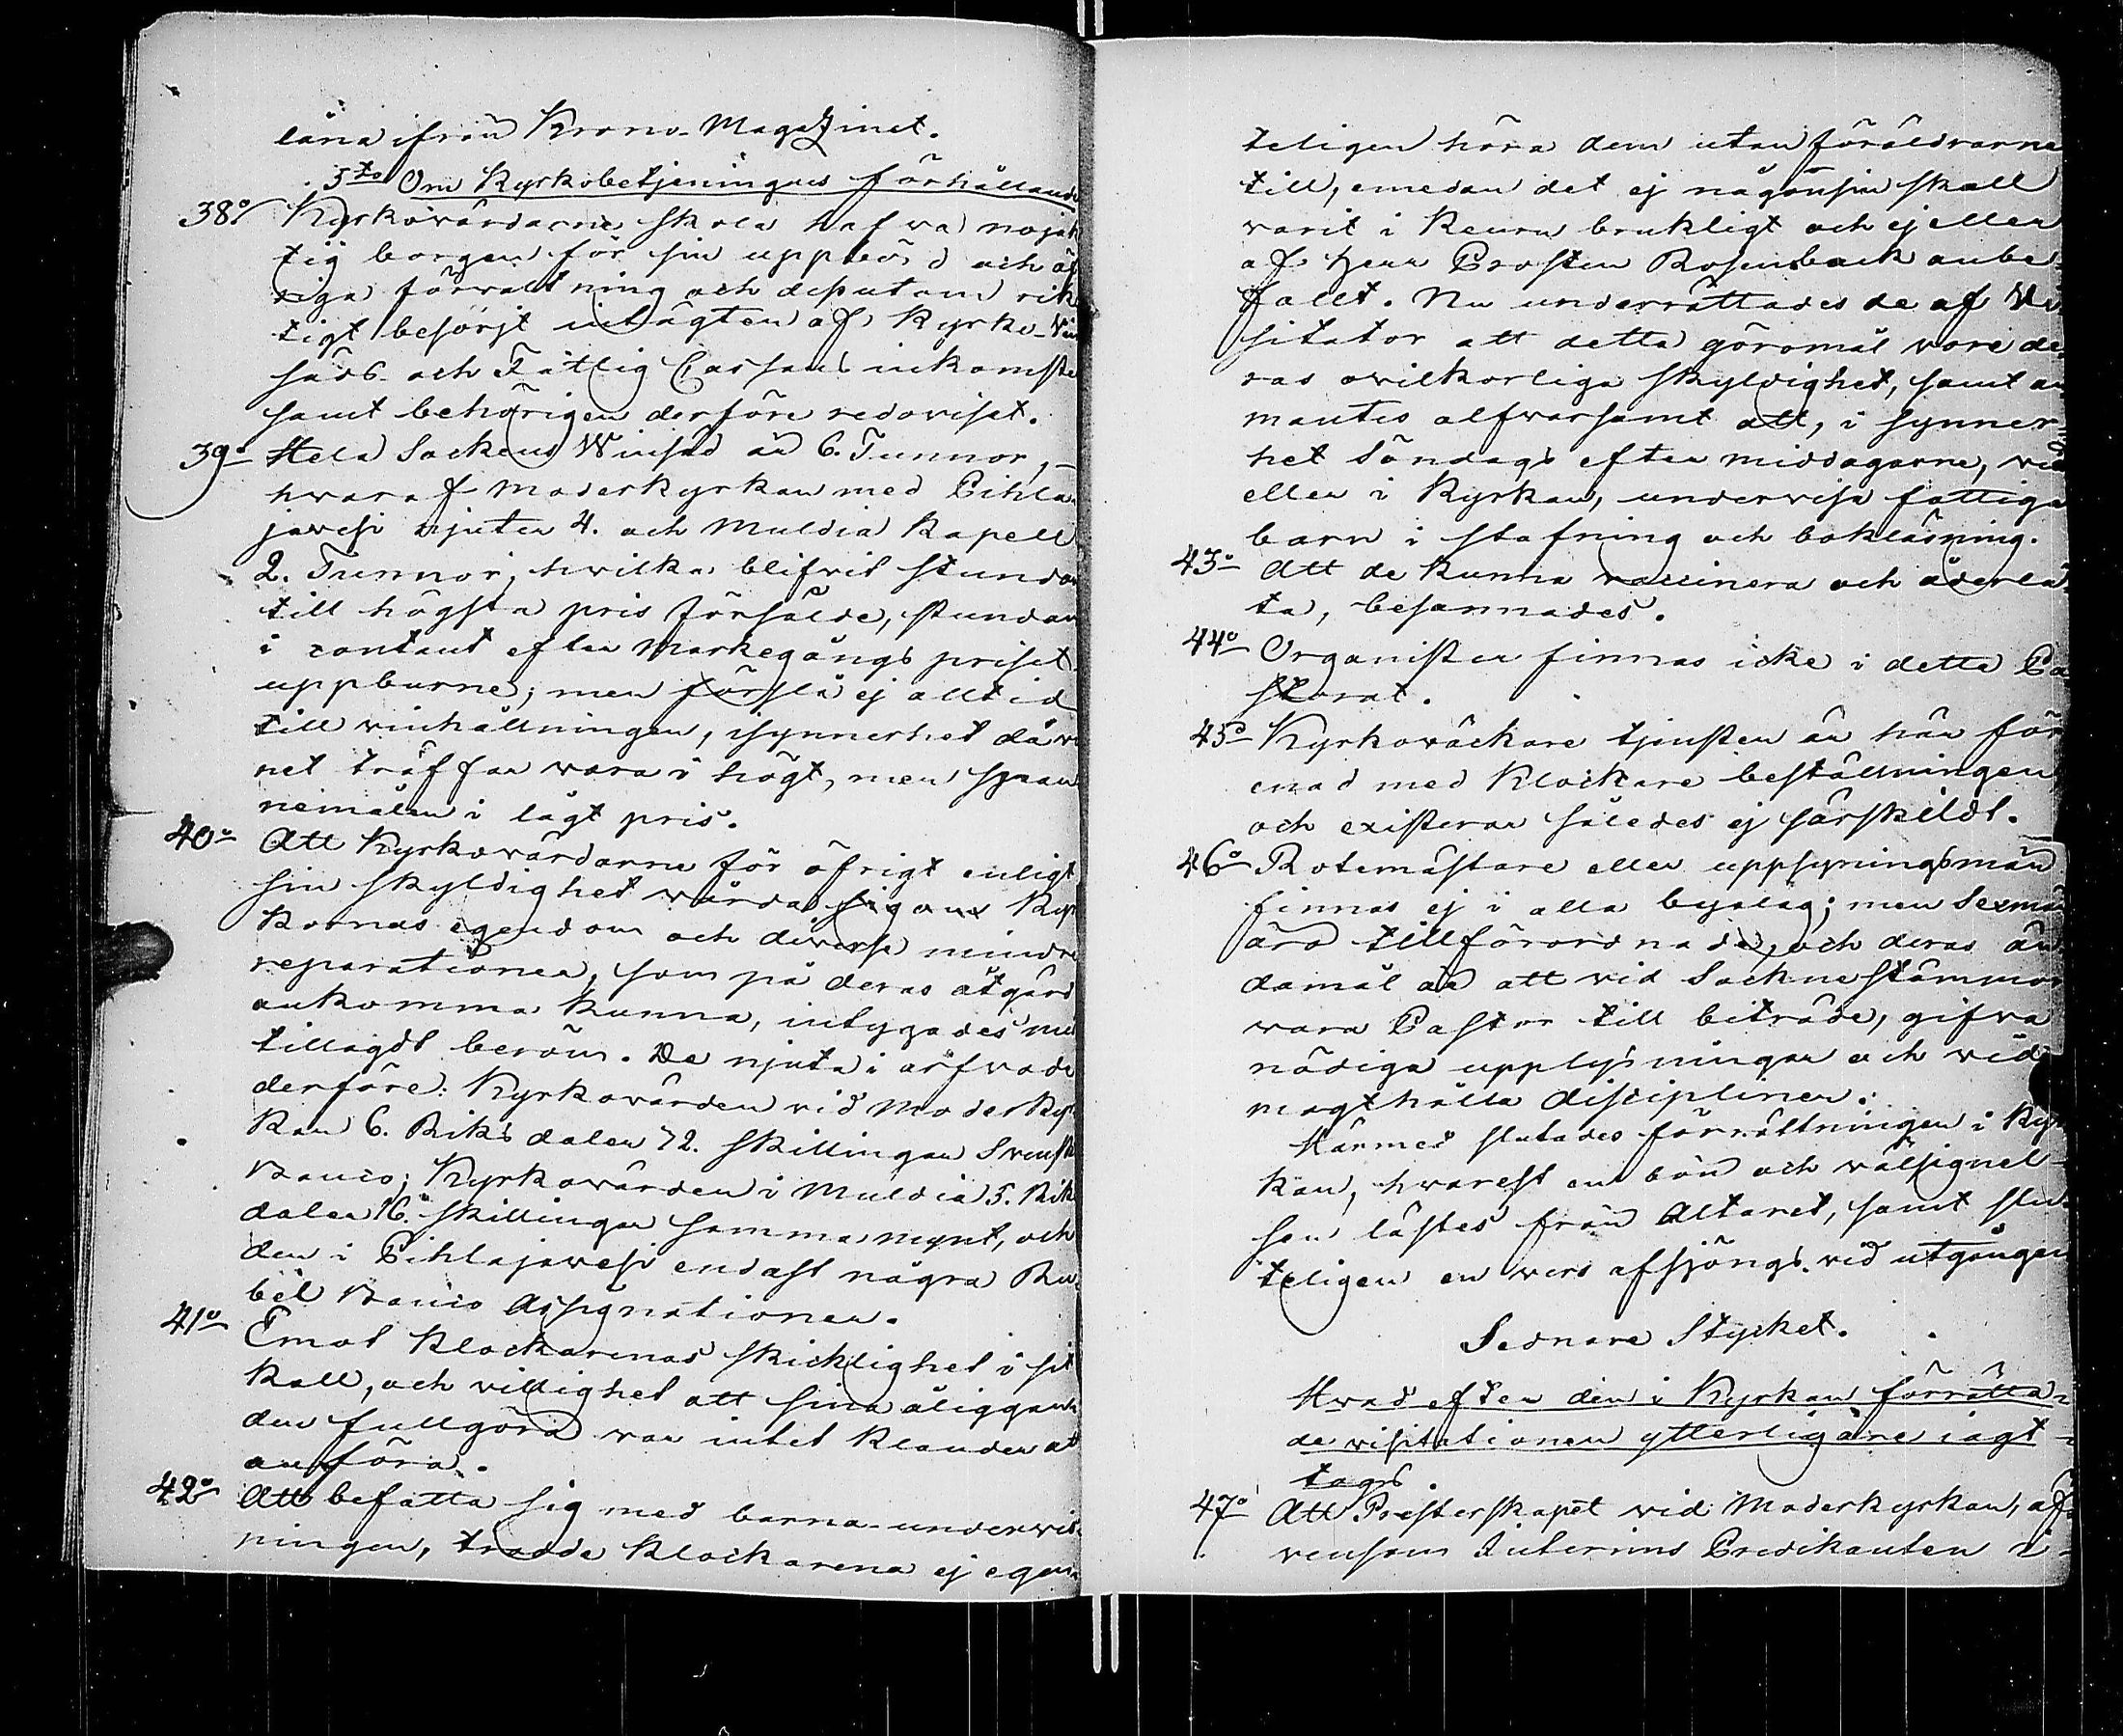 låna ifrån Krono-Magazinet.
5to Om Kyrkobetjeningens förhållande
38o Kyrkovärdarne skola hafva nöjak
tig borgen för sin uppbörd och öf
riga förvaltning och desutom rik
tigt besörjt intägten af Kyrko- Vin
säds- och Fattig Cassans inkomster
samt behörigen derföre redoviset.
39o Hela Sockens Winsäd är 6. Tunnor,
hvaraf Moderkyrkan med Pihla
javesi njuter 4. och Muldia Kapell
2. Tunnor, hvilka blifvit stundom
till högsta pris försålde, stundom
i contant efter Markegångs priset
uppburne; men förslå ej alltid
till vinhållningen, isynnerhet då vi
net träffar vara i högt, men span
neimålen i lågt pris.
40o Att Kyrkovärdarne för öfrigt enligt
sin skyldighet vårda sig om Kyr
kornas egendom och diverse mindre
reparationer, som på deras åtgärd
ankomma kunna, intygades med
tillagdt beröm. De njuta i arfvode
derföre: Kyrkovärden vid Moderkyr
kan 6. Riksdaler 72. skillingar Svensk
Banco; Kyrkovärden i Muldia 5. Riks
daler 16. skillingar samma mynt, och
den i Pihlajavesi endast några Ru
bel Banco Assignationer.
41o Emot Klockarenas skicklighet i sit
kall, och villighet att sina åliggan
den fullgöra var intet klander at
anföra.
42o Att befatta sig med barna-undervis
ningen, trodde Klockarena ej egen
teligen höra dem utan föräldrarne
till, emedan det ej någonsin skall
varit i Keuru brukligt och ej eller
af Herr Prosten Rosenback anbe
fallt. Nu underrättades de af Vi
sitator att detta göromål vore de
ras ovilkorliga skyldighet, samt an
mantes alfvarsamt att, i synner
het Söndags eftermiddagarne, vid
eller i Kyrkan, undervisa fattiga
barn i stafning och bokläsning.
43o Att de kunna vaccinera och åderlå
ta, besannades.
44o Organister finnas icke i detta Pa
storat.
45o Kyrkoväckare tjensten är här för
enad med Klockare beställningen
och existerar således ej särskildt.
46o Rotemästare eller uppsyningsmän
finnas ej i alla byalag; men Sexmän
äro tillförordnade, och deras än
damål är att vid Socknestämmor
vara Pastor till biträde, gifva
nödiga upplysningar och vid
magthålla disciplinen.
Härmed slutades förrättningen i Kyr
kan, hvarest en bön och välsignel
sen lästes från Altaret, samt slu
teligen en vers afsjöngs vid utgången
Sednare Stycket.
Hvad efter den i Kyrkan förrätta-
de visitationen ytterligare iagt-
tags.
47o Att Presterskapet vid Moderkyrkan, äf
vensom Interims Predikanten i